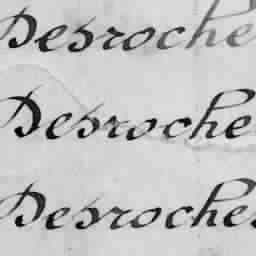 Desroche
Desroche
Desroches